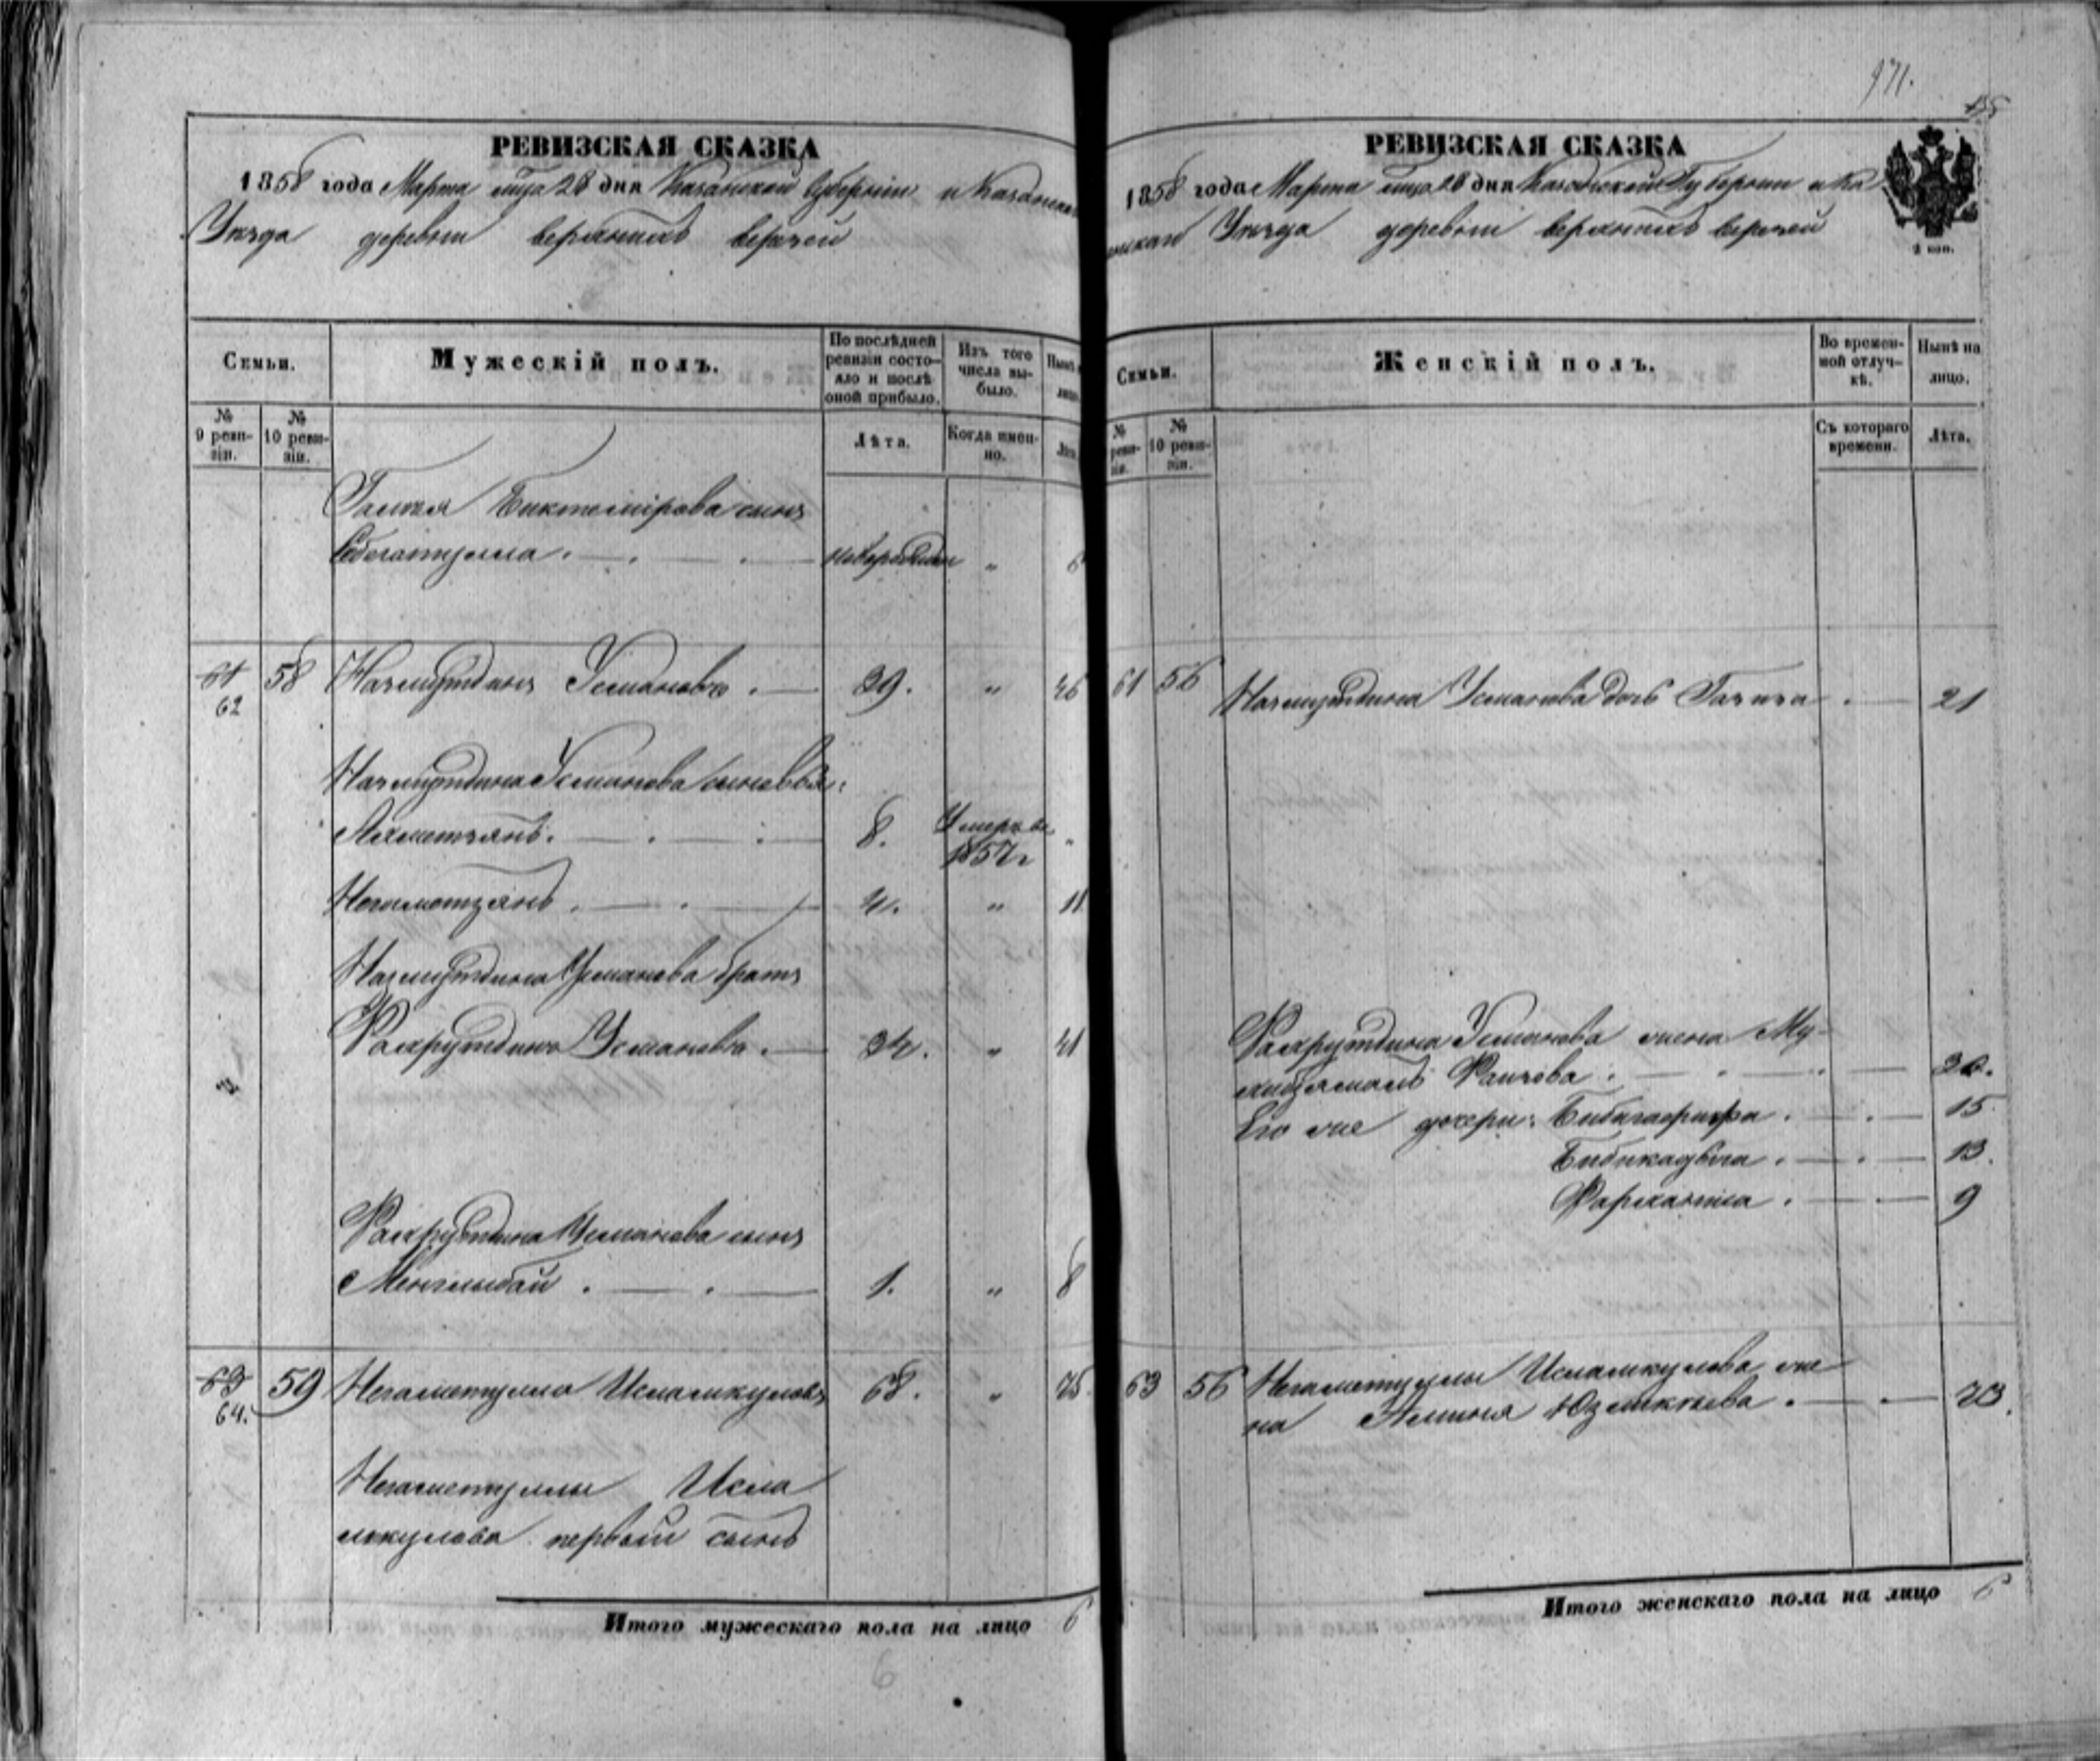 РЕВИЗСКАЯ СКАЗКА
1858 года Марта мца 28 дня Казанской Губернии и Казанскаго
Уезда деревни верхних верезей
Семьи.
Мужескій полъ.
По послѣдней ревизіи состо-
яло и послѣ
оной прибыло.
Изъ того
числа вы-
было.
Нынѣ
лицо
№
9 реви-
зіи.
№
10 реви-
зіи.
Лѣта.
Когда имен-
но.
Лѣта
Биктемірова сынъ
новорожден " 6
61
62
58 Назмутдинъ Усмановъ . — 39. " 46
Назмутдина Усманова сыновья:
Ахметзянъ. — . — . 8. Умеръ въ
1857г
Негаметзянъ . — . — 4. " 11
Назмутдина Усманова братъ
Фахрутдинъ Усмановъ . — 34. " 41
Фахрутдина Усманова сынъ
Менглыбай . — . — 1. " 8
63
64.
59 Негаметулла Исламкуловъ 68. " 75.
Негаметуллы Исла
мкулова первый сынъ
Итого мужескаго пола на лицо 6
6
171.
РЕВИЗСКАЯ СКАЗКА
1858 года Марта мца 28 дня Казанской Губернии и Ка
Уезда деревни верхних верезей
2 коп.
Семьи.
Женскій полъ.
Во времен-
ной отлуч-
кѣ.
Нынѣ на
лицо.
№
реви-
зіи.
№
10 реви-
зіи.
Съ котораго
времени.
Лѣта.
61 56 Назмутдина Усманова дочь . — 21
Фахрутдина Усманова жена Му-
. — . — . —
Его же дочери: . — . — 15
. — . — 13.
. — . — 9
63 56 Негаметуллы Исламкулова же
на . — . — 73.
Итого женскаго пола на лицо 6